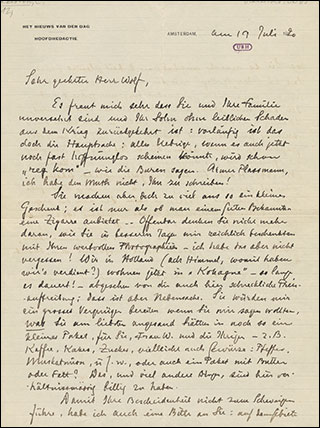 HET NIEUWS VAN DEN DAG
HOOFDREDACTIE
AMSTERDAM, am 17 Juli 20
Sehr geehrter Herr Wolf,
Es freut mich sehr dass Sie und Ihre Familie
unversehrt sind und Ihr Sohn ohne leiblichen Schaden
aus dem Krieg zurückgekehrt ist: vorläufig ist das
doch die Hauptsache; alles Uebrige, wenn es auch jetzt
noch fast hoffnungslos scheinen könnte, wird schon
"reg kom" – wie die Buren sagen. Armer Plassmann,
ich habe den Muth nicht, Ihm zu schreiben!
Sie machen aber doch zu viel aus so ein kleines
Geschenk; es ist nur als ob man einem guten Bekannten
eine Zigarre anbietet – Offenbar denken Sie nicht mehr
daran, wie Sie in besseren Tagen mir reichlich beschenkten
mit Ihren wertvollen Photographien – ich habe das aber nicht
vergessen! Wir in Holland (ach Himmel, womit haben
wir's verdient?) wohnen jetzt in "Kokagna" – so lange
es dauert! – abgesehen von die auch hier schreckliche Preis-
auftreibung; dass ist aber Nebensache. Sie würden mir
ein grosses Vergnügen bereiten wenn Sie mir sagen wollten,
was Sie am liebsten zugesand hätten in noch so ein
kleines Paket, für Sie, Frau W. und die Ihrigen – z.B.
Kaffee, Kakao, Zucker, vielleicht auch Gewürze: Pfeffer,
Muscatnuss u.s.w., oder auch ein Paket mit Butter
oder Fett? Das, und viel andere Dinge, sind hier ver-
hältnissmässig billig zu haben.
Damit Ihre Bescheidenheit nicht zum Schweigen
führe, habe ich auch eine Bitte an Sie: